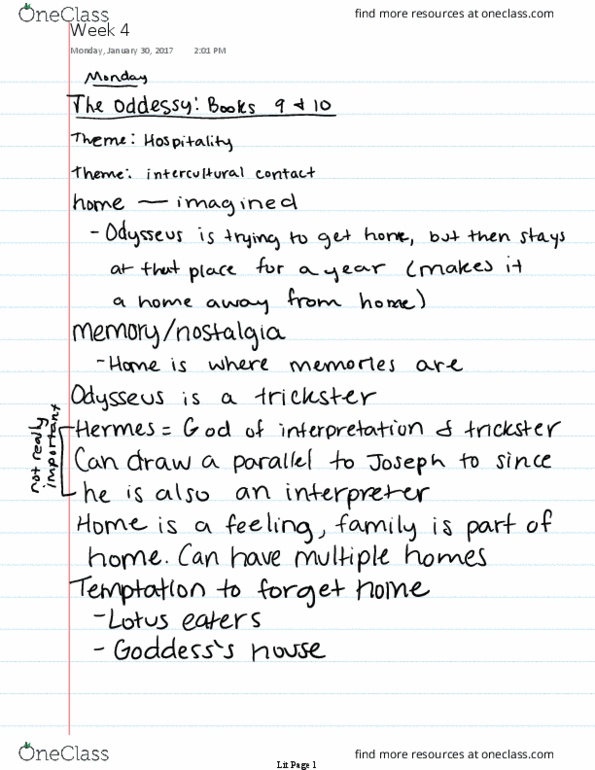 OneClass find more resources at oneclass.com
Week 4
Monday, January 30, 2017 2:01 PM
Monday
The Oddessy: Books 9 & 10
Theme: Hospitality
Theme: intercultural contact
home — imagined
- Odysseus is trying to get home, but then stays
at that place for a year (makes it
a home away from home)
memory/nostalgia
- Home is where memories are
Odysseus is a trickster
not really
important
Hermes = God of interpretation & trickster
Can draw a parallel to Joseph to since
he is also an interpreter
Home is a feeling, family is part of
home. Can have multiple homes
Temptation to forget home
- Lotus eaters
- Goddess's house
OneClass find more resources at oneclass.com
Lit Page 1